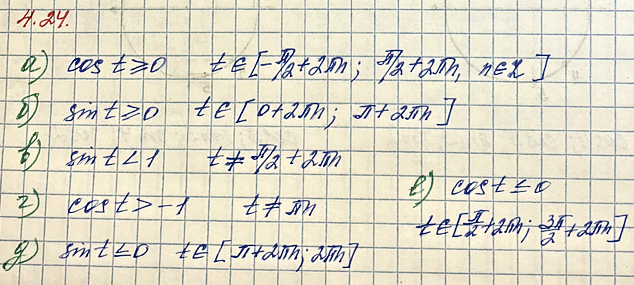 4.24.
а) cos t ≥ 0 t ∈ [-π/2 + 2πn; π/2 + 2πn, n ∈ Z]
б) sin t ≥ 0 t ∈ [0 + 2πn; π + 2πn]
в) sin t < 1 t ≠ π/2 + 2πn
г) cos t > -1 t ≠ πn
д) sin t ≤ 0 t ∈ [π + 2πn; 2πn]
е) cos t ≤ 0
t ∈ [π/2 + 2πn; 3π/2 + 2πn]